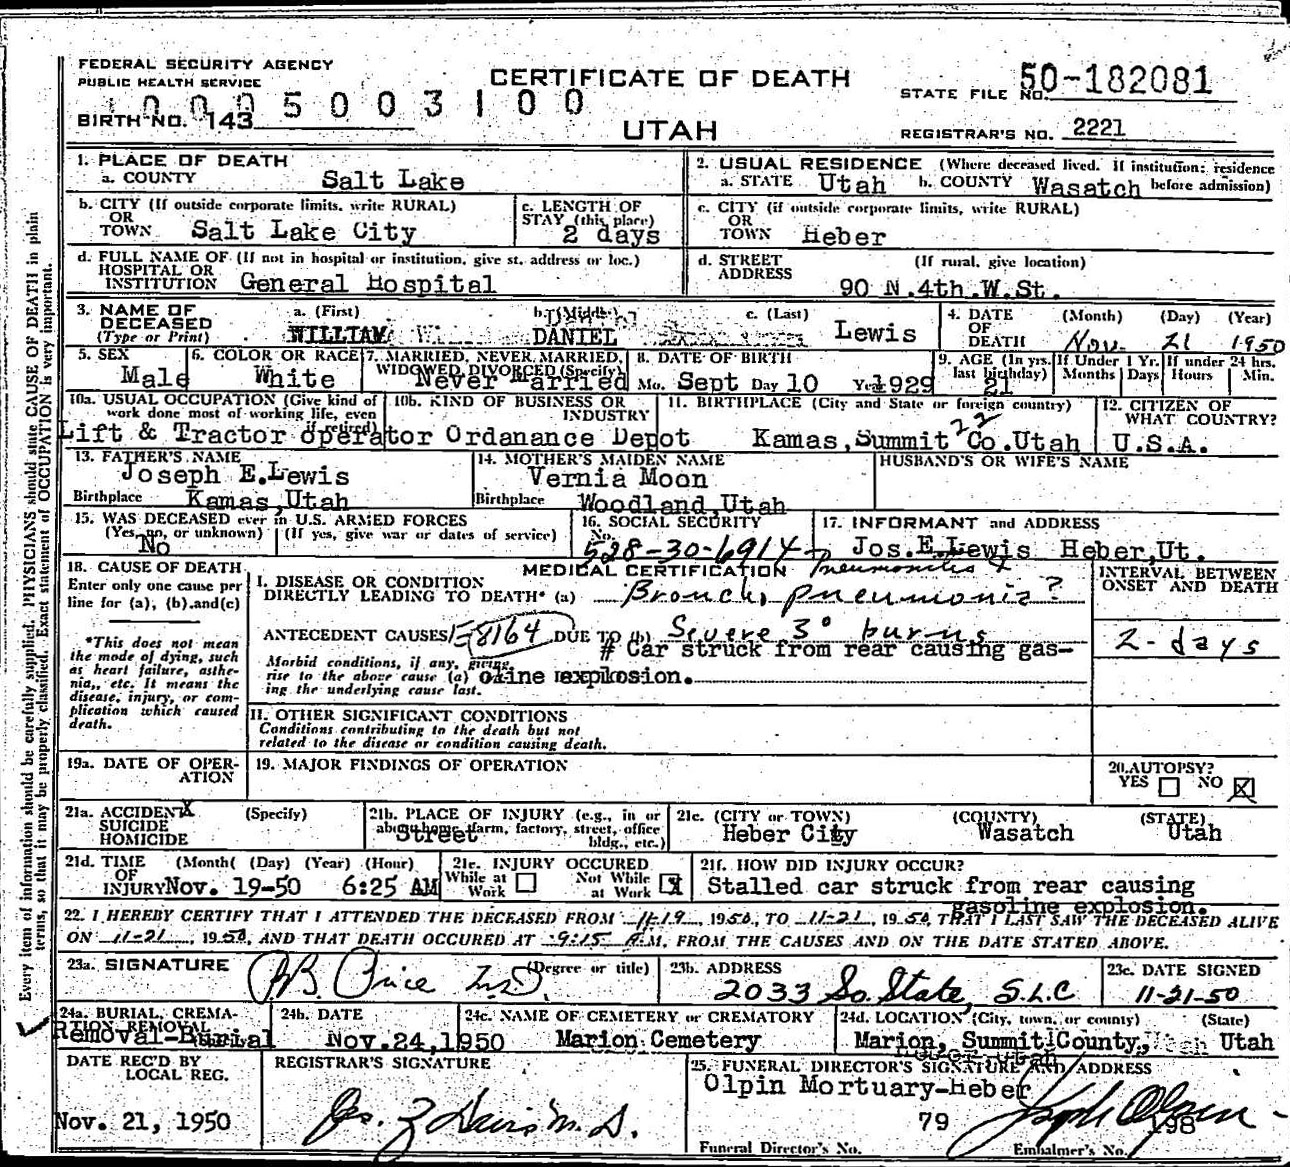 FEDERAL SECURITY AGENCY
PUBLIC HEALTH SERVICE
CERTIFICATE OF DEATH
UTAH
STATE FILE NO. 50-182081
0005003100
BIRTH NO. 143
REGISTRAR'S NO. 2221
1. PLACE OF DEATH
a. COUNTY Salt Lake
2. USUAL RESIDENCE (Where deceased lived. If institution: residence before admission)
a. STATE Utah b. COUNTY Wasatch
b. CITY (If outside corporate limits, write RURAL) OR TOWN Salt Lake City
c. LENGTH OF STAY (this place) 2 days
c. CITY (if outside corporate limits, write RURAL) OR TOWN Heber
d. FULL NAME OF (If not in hospital or institution, give st. address or loc.) HOSPITAL OR INSTITUTION General Hospital
d. STREET ADDRESS (If rural, give location) 90 N.4th.W.St.
3. NAME OF DECEASED (Type or Print)
a. (First) WILLIAM
b. (Middle) DANIEL
c. (Last) Lewis
4. DATE OF DEATH (Month) (Day) (Year) Nov. 21 1950
5. SEX Male
6. COLOR OR RACE White
7. MARRIED, NEVER MARRIED, WIDOWED, DIVORCED (Specify) Never Married
8. DATE OF BIRTH Mo. Sept Day 10 Year 1929
9. AGE (In yrs. last birthday) 21
If Under 1 Yr. Months Days
If under 24 hrs. Hours Min.
10a. USUAL OCCUPATION (Give kind of work done most of working life, even if retired) Lift & Tractor operator
10b. KIND OF BUSINESS OR INDUSTRY Ordanance Depot
11. BIRTHPLACE (City and State or foreign country) Kamas, Summit Co. Utah
22
12. CITIZEN OF WHAT COUNTRY? U.S.A.
13. FATHER'S NAME Joseph E.Lewis
Birthplace Kamas, Utah
14. MOTHER'S MAIDEN NAME Vernia Moon
Birthplace Woodland, Utah
HUSBAND'S OR WIFE'S NAME
15. WAS DECEASED ever in U.S. ARMED FORCES
(Yes, no, or unknown) (If yes, give war or dates of service)
No
16. SOCIAL SECURITY No. 528-30-6914
17. INFORMANT and ADDRESS
Jos.E.Lewis Heber,Ut.
18. CAUSE OF DEATH
Enter only one cause per line for (a), (b), and (c)
*This does not mean the mode of dying, such as heart failure, asthenia, etc. It means the disease, injury, or complication which caused death.
MEDICAL CERTIFICATION
INTERVAL BETWEEN ONSET AND DEATH
I. DISEASE OR CONDITION DIRECTLY LEADING TO DEATH* (a) Pneumonitis + Bronch. pneumonia?
ANTECEDENT CAUSES E8164 DUE TO (b) Severe 3° burns
2-days
# Car struck from rear causing gas-
Morbid conditions, if any, giving rise to the above cause (a) oline explosion.
ing the underlying cause last.
II. OTHER SIGNIFICANT CONDITIONS
Conditions contributing to the death but not related to the disease or condition causing death.
19a. DATE OF OPERATION
19. MAJOR FINDINGS OF OPERATION
20. AUTOPSY? YES NO X
21a. ACCIDENT X SUICIDE HOMICIDE (Specify)
21b. PLACE OF INJURY (e.g., in or about home, farm, factory, street, office bldg., etc.) Street
21c. (CITY or TOWN) Heber City
(COUNTY) Wasatch
(STATE) Utah
21d. TIME OF INJURY (Month) (Day) (Year) (Hour) Nov. 19-50 6:25 AM
21e. INJURY OCCURED While at Work Not While at Work X
21f. HOW DID INJURY OCCUR?
Stalled car struck from rear causing
gasoline explosion.
22. I HEREBY CERTIFY THAT I ATTENDED THE DECEASED FROM 11-19, 1950, TO 11-21, 1950, THAT I LAST SAW THE DECEASED ALIVE
ON 11-21, 1950, AND THAT DEATH OCCURED AT 9:15 P.M. FROM THE CAUSES AND ON THE DATE STATED ABOVE.
23a. SIGNATURE (Degree or title)
Price M.D.
23b. ADDRESS 2033 So. State, S.L.C
23c. DATE SIGNED 11-21-50
24a. BURIAL, CREMATION, REMOVAL Removal-Burial
24b. DATE Nov.24,1950
24c. NAME OF CEMETERY or CREMATORY Marion Cemetery
24d. LOCATION (City, town, or county) (State) Marion, Summit County, Utah
DATE REC'D BY LOCAL REG. Nov. 21, 1950
REGISTRAR'S SIGNATURE
25. FUNERAL DIRECTOR'S SIGNATURE AND ADDRESS
Olpin Mortuary-Heber
79
198
Funeral Director's No.
Embalmer's No.
Every item of information should be carefully supplied. PHYSICIANS should state CAUSE OF DEATH in plain
terms, so that it may be properly classified. Exact statement of OCCUPATION is very important.